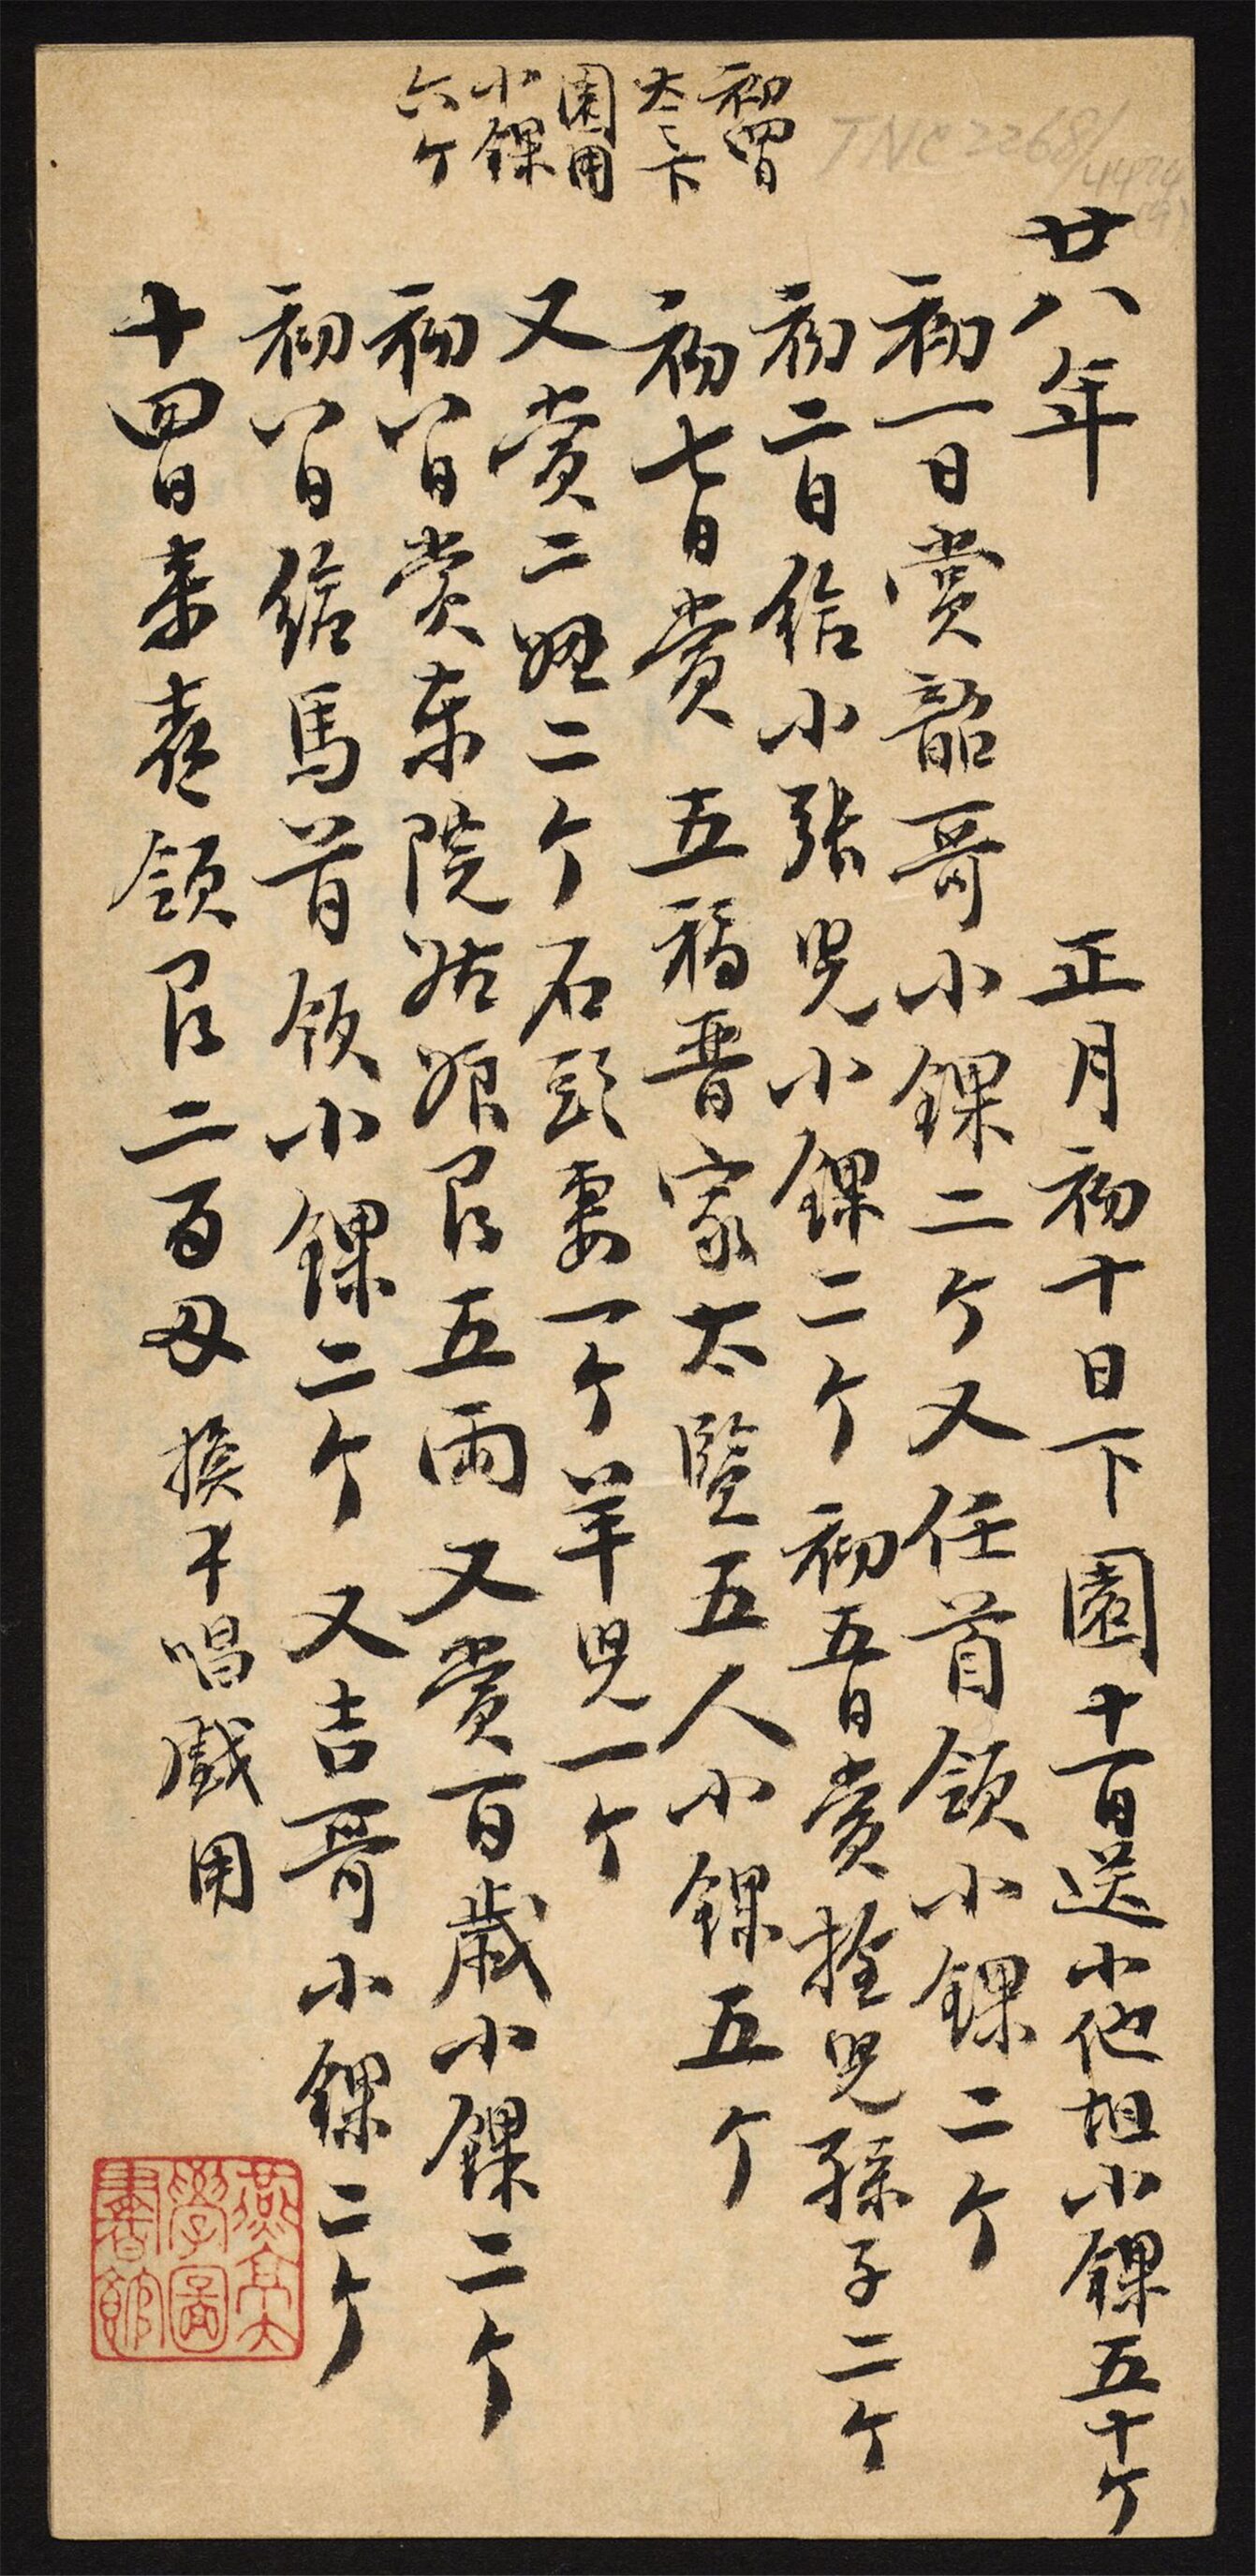 初四日
太太下
園用
小錁
六个
TNC2268/
4474
(9)
廿八年 正月初十日下園十一日送小他坦小錁五十个
初一日賞韶哥小錁二个又任首領小錁二个
初二日給小張児小錁二个初五日賞拴児孫子二个
初七日賞五福晋家太監五人小錁五个
又賞二妞二个石頭妻一个羊児一个
初八日賞东院姑娘艮五両又賞百歲小錁二个
初八日給馬首領小錁二个又吉哥小錁二个
十四日来喜領艮二百 換ホ唱戯用
燕京大
學圖
書館